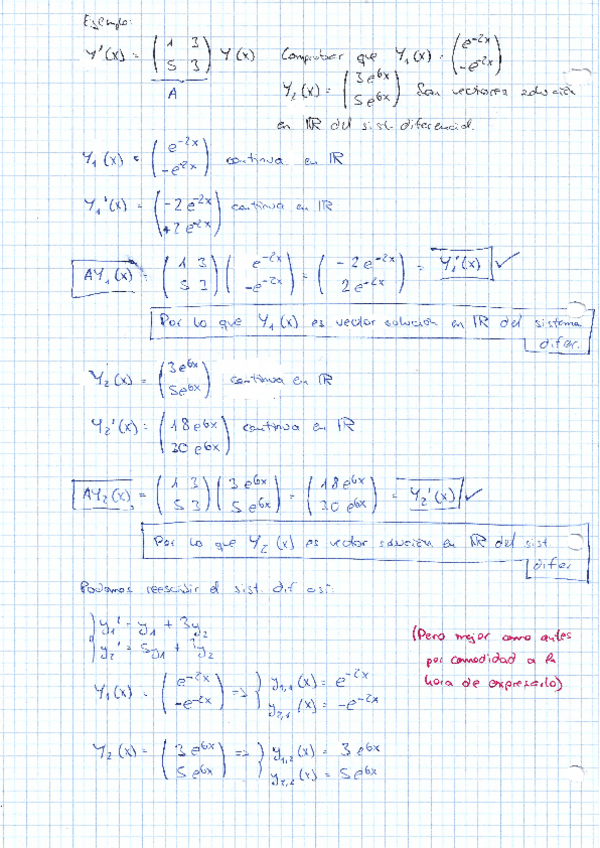 Ejemplo:
Y'(x) = ( 1 3 ; 5 3 ) Y(x) Comprobar que Y₁(x) = ( e^-2x ; -e^-2x )
A
Y₂(x) = ( 3e^6x ; 5e^6x ) Son vectores solución
en ℝ del sist. diferencial.
Y₁(x) = ( e^-2x ; -e^-2x ) continua en ℝ
Y₁'(x) = ( -2e^-2x ; +2e^-2x ) continua en ℝ
AY₁(x) = ( 1 3 ; 5 3 ) ( e^-2x ; -e^-2x ) = ( -2e^-2x ; 2e^-2x ) = Y₁'(x) ✓
Por lo que Y₁(x) es vector solución en ℝ del sistema
difer.
Y₂(x) = ( 3e^6x ; 5e^6x ) continua en ℝ
Y₂'(x) = ( 18e^6x ; 30e^6x ) continua en ℝ
AY₂(x) = ( 1 3 ; 5 3 ) ( 3e^6x ; 5e^6x ) = ( 18e^6x ; 30e^6x ) = Y₂'(x) ✓
Por lo que Y₂(x) es vector solución en ℝ del sist
difer
Podamos reescribir el sist. dif así:
y₁' = y₁ + 3y₂
y₂' = 5y₁ + 3y₂
(Pero mejor como antes
por comodidad a la
hora de expresarlo)
Y₁(x) = ( e^-2x ; -e^-2x ) => } y₁,₁(x) = e^-2x
y₂,₁(x) = -e^-2x
Y₂(x) = ( 3e^6x ; 5e^6x ) => } y₁,₂(x) = 3e^6x
y₂,₂(x) = 5e^6x